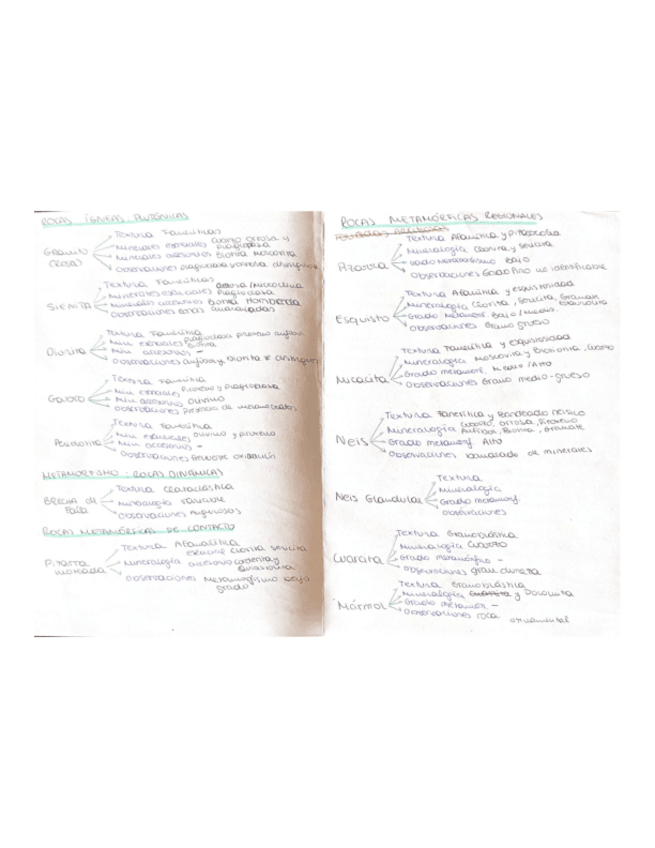 ROCAS ÍGNEAS: PLUTÓNICAS
Granito (Rosa)
Textura Faneríticas
Minerales esenciales Cuarzo ortosa y plagioclasa
Minerales accesorios Biotita Moscovita
Observaciones plagioclasa y ortosa
Sienita
Textura Faneríticas
Minerales esenciales plagioclasa
Minerales accesorios Biotita Hornblenda
Observaciones
Diorita
Textura Fanerítica
Min. esenciales plagioclasa piroxeno
Min. accesorios -
Observaciones
Gabro
Textura Fanerítica
Min esenciales Piroxeno y plagioclasa
Min accesorios olivino
Observaciones presencia de
Peridotita
Textura Fanerítica
Min esenciales olivino y piroxeno
Min accesorios -
Observaciones oxidación
METAMORFISMO: ROCAS DINÁMICAS
BRECHA DE Falla
Textura Cataclástica
Mineralogía variable
Observaciones Angulosos
ROCAS METAMÓRFICAS DE CONTACTO
Pizarra moteada
Textura Afanítica
Mineralogía esencial Clorita sericita
accesorio cordierita y
Observaciones Metamorfismo bajo grado
ROCAS METAMÓRFICAS REGIONALES
Pizarra
Textura Afanítica y pizarrosa
Mineralogía Clorita y sericita
Grado metamorfismo bajo
Observaciones Grado fino no identificable
Esquisto
Textura Afanítica y esquistosada
Mineralogía Clorita, sericita, Granate
Grado metamorf. Bajo/medio.
Observaciones Grano grueso
Micacita
Textura Fanerítica y esquistosada
Mineralogía Moscovita y, cuarzo
Grado metamorf. Medio/Alto
Observaciones Grano medio-grueso
Neis
Textura Fanerítica y Bandeado neísico
Mineralogía Cuarzo, ortosa, Piroxeno
Anfíbol, Biotita, Granate
Grado metamorf Alto
Observaciones bandeado de minerales
Neis Glandular
Textura
Mineralogía
Grado metamorf.
Observaciones
Cuarcita
Textura Granoblástica
Mineralogía Cuarzo
Grado metamórfico -
Observaciones gran dureza
Mármol
Textura Granoblástica
Mineralogía y Dolomita
Grado metamor. -
Observaciones roca ornamental